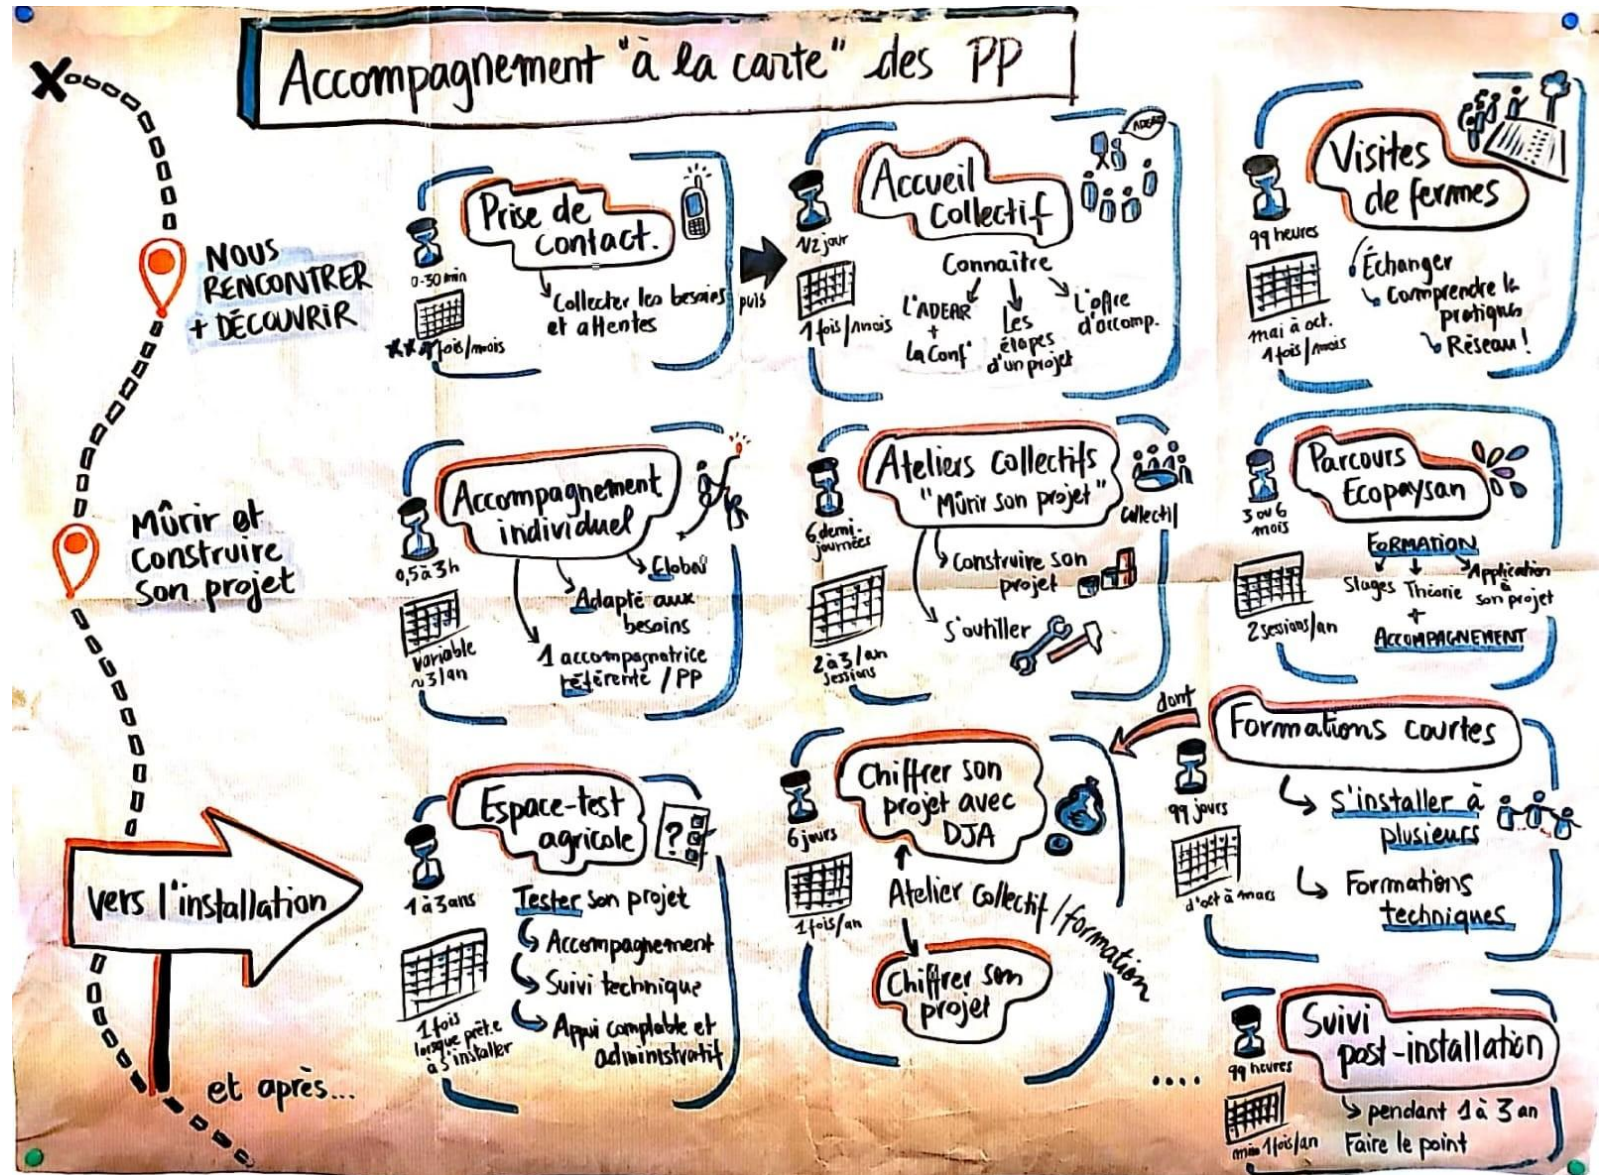 Accompagnement "à la carte" des PP
NOUS
RENCONTRER
+ DÉCOUVRIR
Prise de
contact.
0-30 min
fois/mois
Collecter les besoins
et attentes
puis
Accueil
Collectif
ADEAR
1/2 jour
1 fois/mois
Connaître
L'ADEAR
+
la Conf'
Les
étapes
d'un projet
L'offre
d'accomp.
Visites
de fermes
99 heures
mai à oct.
1 fois/mois
Échanger
Comprendre le
pratiques
Réseau !
Mûrir et
construire
son projet
Accompagnement
individuel
0,5 à 3h
variable
~3/an
Global
Adapté aux
besoins
1 accompagnatrice
référente / PP
Ateliers collectifs
"Mûrir son projet"
Collectif
6 demi-
journées
2 à 3/an
sessions
Construire son
projet
S'outiller
Parcours
Ecopaysan
3 ou 6
mois
2 sessions/an
FORMATION
Stages Théorie Application
à
son projet
+
ACCOMPAGNEMENT
vers l'installation
Espace-test
agricole
?
1 à 3 ans
1 fois
lorsque prêt.e
à s'installer
Tester son projet
Accompagnement
Suivi technique
Appui comptable et
administratif
Chiffrer son
projet avec
DJA
6 jours
1 fois/an
Atelier Collectif / formation
Chiffrer son
projet
dont
Formations courtes
99 jours
d'oct à mars
S'installer à
plusieurs
Formations
techniques
et après...
....
Suivi
post-installation
99 heures
min 1 fois/an
pendant 1 à 3 an
Faire le point